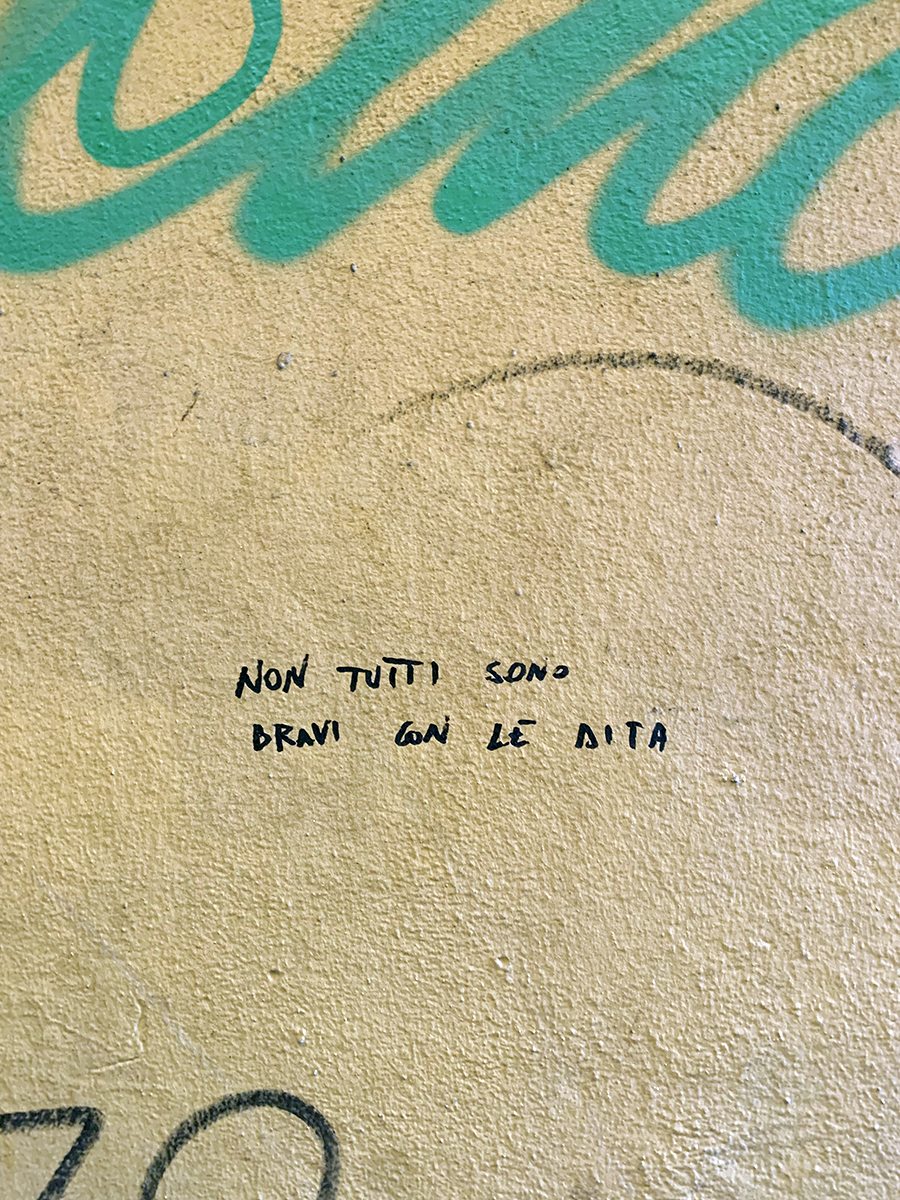 NON TUTTI SONO
BRAVI CON LE DITA